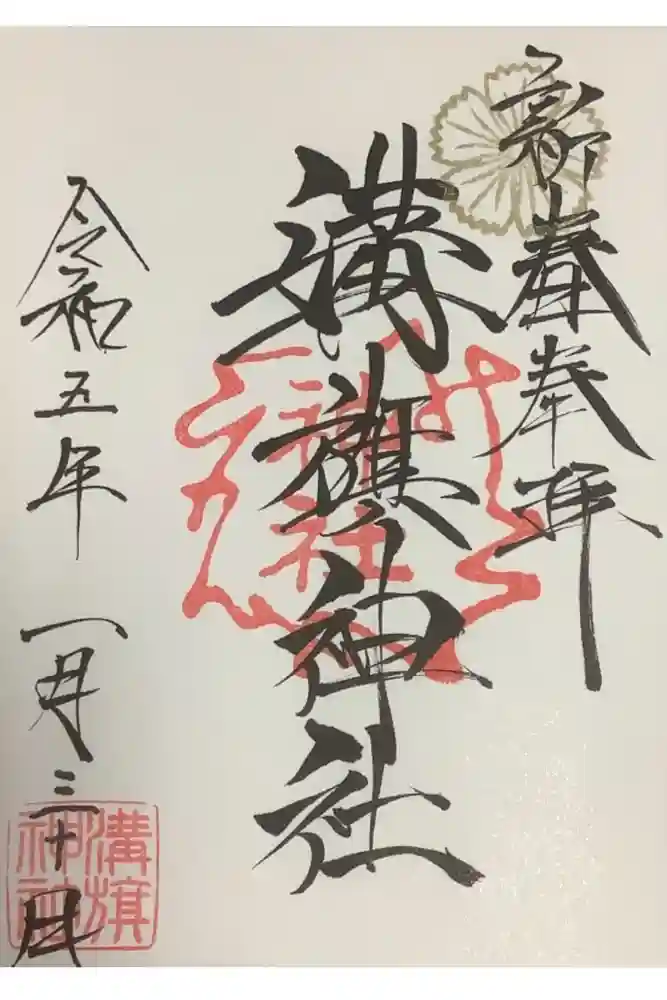 新春奉拝
溝旗神社
令和五年 一月三十日
溝旗
神社
神社